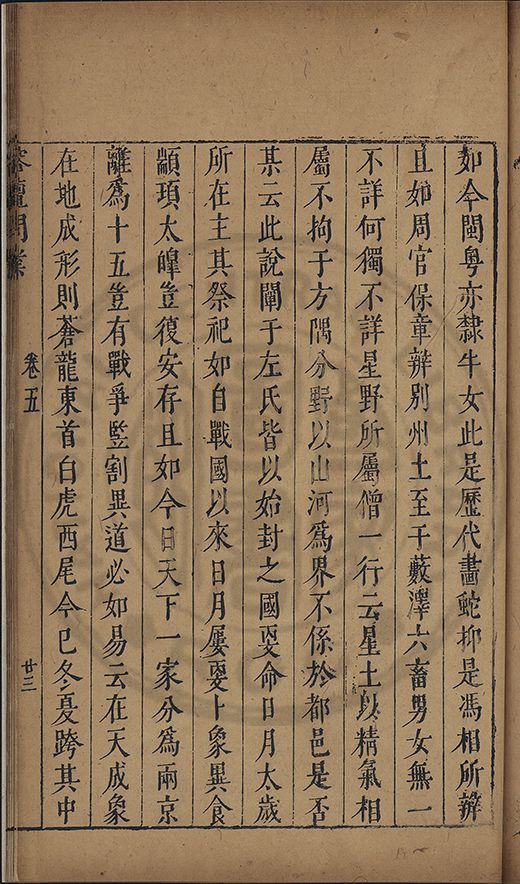 如今閩粵亦隸牛女此是歷代畵蛇抑是馮相所辨
且如周官保章辨别州土至于藪澤六畜男女無一
不詳何獨不詳星野所屬僧一行云星土以精氣相
屬不拘于方隅分野以山河爲界不係於都邑是否
某云此說闡于左氏皆以始封之國受命日月太歲
所在主其祭祀如自戰國以來日月屢更卜象異食
顓頊太皥豈復安存且如今日天下一家分爲兩京
離爲十五豈有戰爭監割異道必如易云在天成象
在地成形則蒼龍東首白虎西尾今已冬夏跨其中
榕壇問業
卷五
廿三